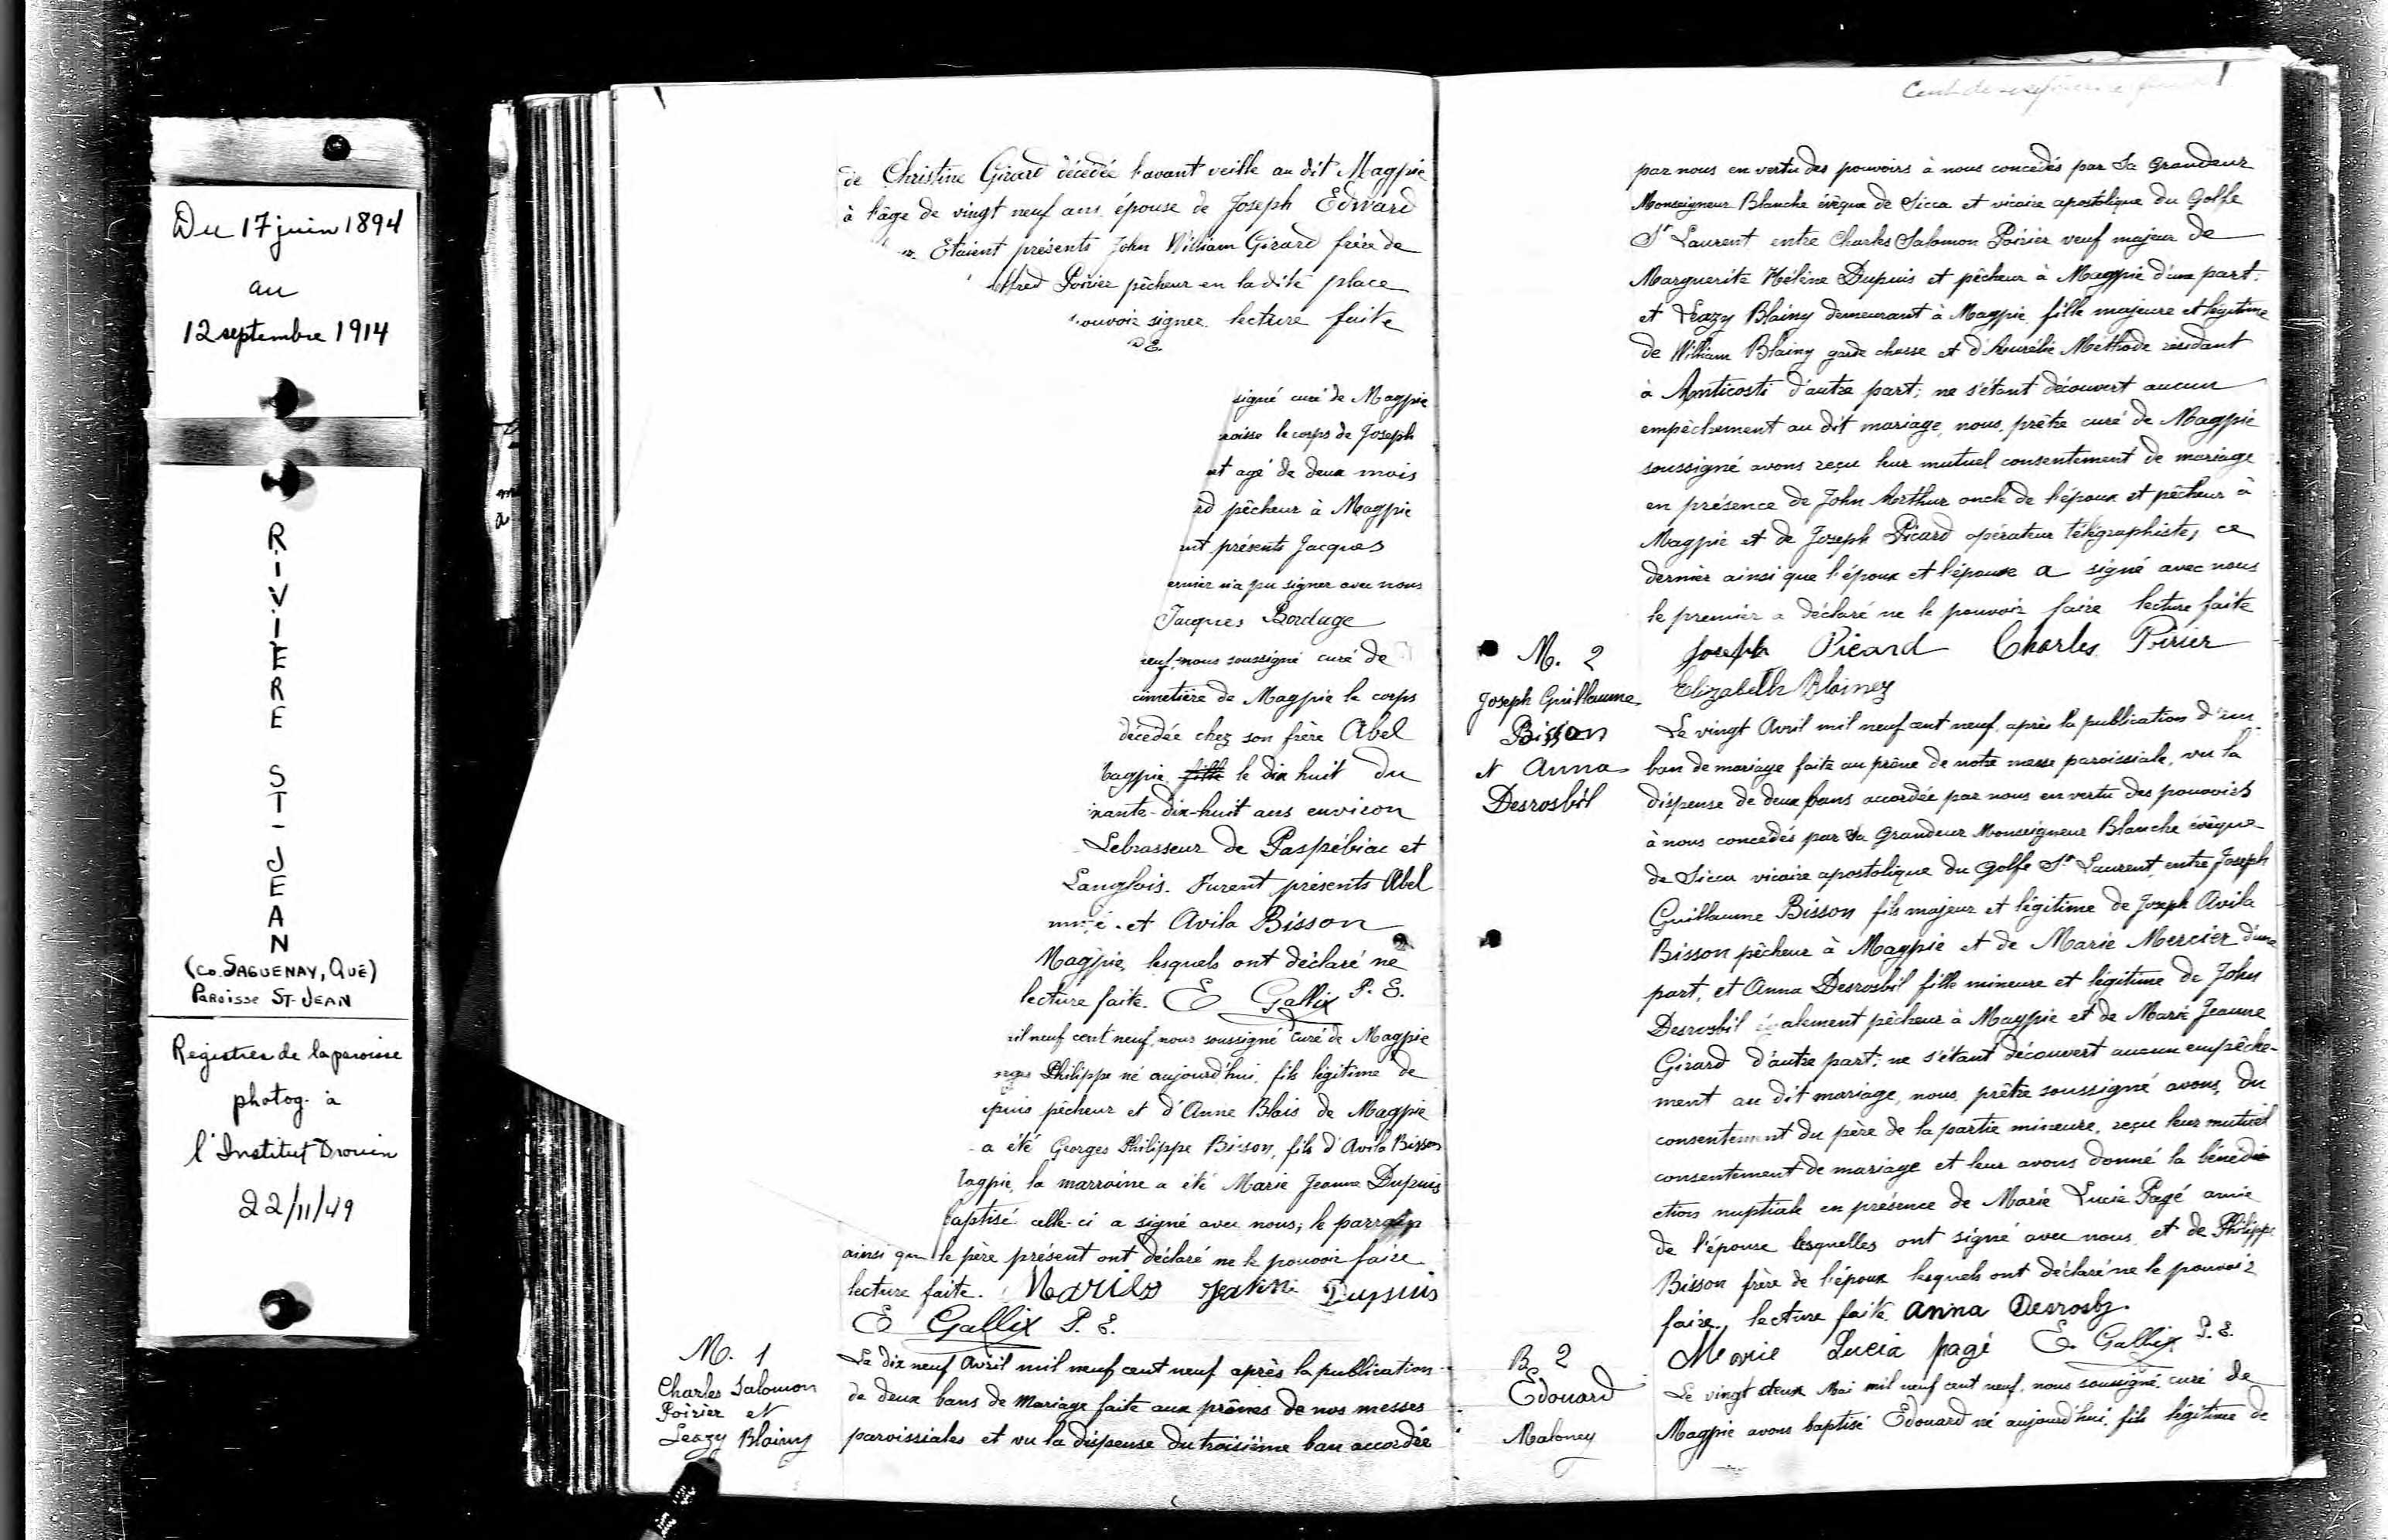 Du 17 juin 1894
au
12 septembre 1914
RIVIÈRE ST-JEAN
(Co. SAGUENAY, QUÉ)
PAROISSE ST-JEAN
Registres de la paroisse
photog. à
l'Institut Drouin
22/11/49
de Christine Girard décédée l'avant veille au dit Magpie
à l'âge de vingt neuf ans épouse de Joseph Edward
Etaient présents John William Girard frère de
Poirier pêcheur en la dite place
signer lecture faite
P.E.
signé curé de Magpie
roisse le corps de Joseph
et agé de deux mois
rd pêcheur à Magpie
nt présents Jacques
ernier n'a pu signer avec nous
Jacques Bordage
neuf, nous soussigné curé de
cimetière de Magpie le corps
décédée chez son frère Abel
agpie fille le dix huit du
ixante-dix-huit ans environ
Lebrasseur de Paspébiac et
Langlois. Furent présents Abel
et Avila Bisson
Magpie, lesquels ont déclaré ne
lecture faite. E Gallix P.E.
mil neuf cent neuf, nous soussigné curé de Magpie
orges Philippe né aujourd'hui, fils légitime de
upuis pêcheur et d'Anne Blais de Magpie
a été Georges Philippe Bisson, fils d'Avila Bisson
agpie, la marraine a été Marie Jeanne Dupuis
baptisé celle-ci a signé avec nous; le parrain
ainsi que le père présent ont déclaré ne le pouvoir faire
lecture faite. Dupuis
E Gallix P.E.
M. 1
Charles Salomon
Poirier et
Leazy Blainy
Le dix neuf Avril mil neuf cent neuf après la publication
de deux bans de Mariage faite aux prônes de nos messes
paroissiales et vu la dispense du troisième ban accordée
par nous en vertu des pouvoirs à nous concédés par Sa Grandeur
Monseigneur Blanche évêque de Sicca et vicaire apostolique du Golfe
St Laurent entre Charles Salomon Poirier veuf majeur de
Marguerite Hélène Dupuis et pêcheur à Magpie d'une part:
et Leazy Blainy demeurant à Magpie, fille majeure et légitime
de William Blainy garde chasse et d'Aurélie Méthode résidant
à Anticosti d'autre part; ne s'étant découvert aucun
empêchement au dit mariage, nous, prêtre curé de Magpie
soussigné avons reçu leur mutuel consentement de mariage
en présence de John Arthur oncle de l'époux et pêcheur à
Magpie et de Joseph Picard opérateur télégraphiste, ce
dernier ainsi que l'époux et l'épouse a signé avec nous
le premier a déclaré ne le pouvoir faire lecture faite
Joseph Picard Charles Poirier
Elizabeth Blainey
M. 2
Joseph Guillaume
Bisson
et Anna
Desrosbil
Le vingt Avril mil neuf cent neuf, après la publication d'un
ban de mariage faite au prône de notre messe paroissiale, vu la
dispense de deux bans accordée par nous en vertu des pouvoirs
à nous concédés par Sa Grandeur Monseigneur Blanche évêque
de Sicca vicaire apostolique du Golfe St Laurent, entre Joseph
Guillaume Bisson fils majeur et légitime de Joseph Avila
Bisson pêcheur à Magpie et de Marie Mercier d'une
part, et Anna Desrosbil fille mineure et légitime de John
Desrosbil également pêcheur à Magpie et de Marie Jeanne
Girard d'autre part: ne s'étant découvert aucun empêche-
ment au dit mariage, nous, prêtre soussigné avons, du
consentement du père de la partie mineure, reçu leur mutuel
consentement de mariage et leur avons donné la bénédi
ction nuptiale en présence de Marie Lucie Pagé amie
de l'épouse lesquelles ont signé avec nous, et de Philippe
Bisson frère de l'époux lesquels ont déclaré ne le pouvoir
faire, lecture faite. Anna Desrosby.
Marie Lucia pagé E. Gallix P.E.
B 2
Edouard
Maloney
Le vingt deux Mai mil neuf cent neuf, nous soussigné, curé de
Magpie avons baptisé Edouard né aujourd'hui, fils légitime de